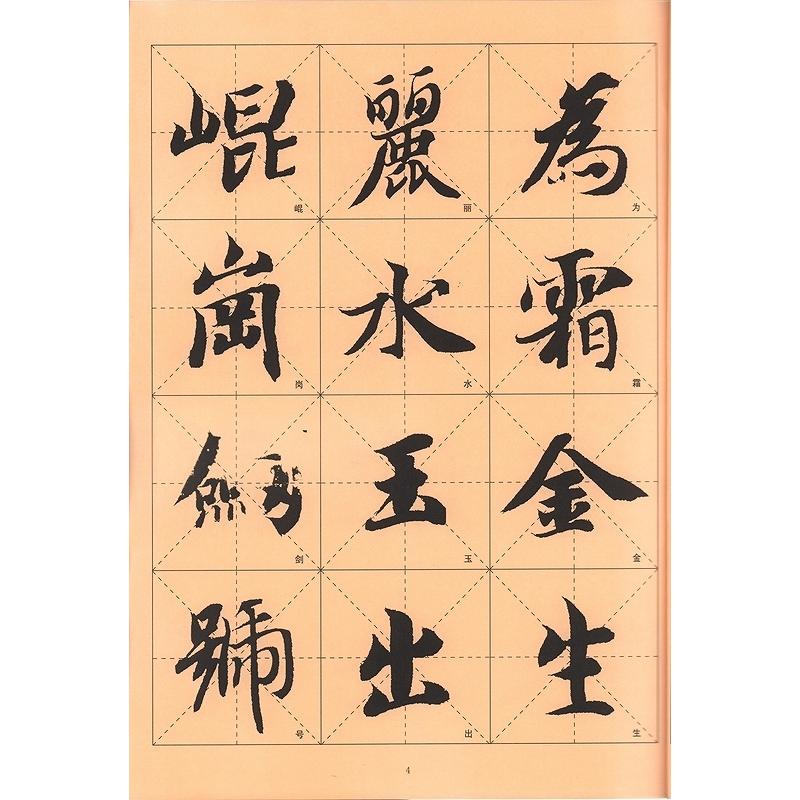 為霜金生
为霜金生
麗水玉出
丽水玉出
崐崗劒號
崐岗剑号
4